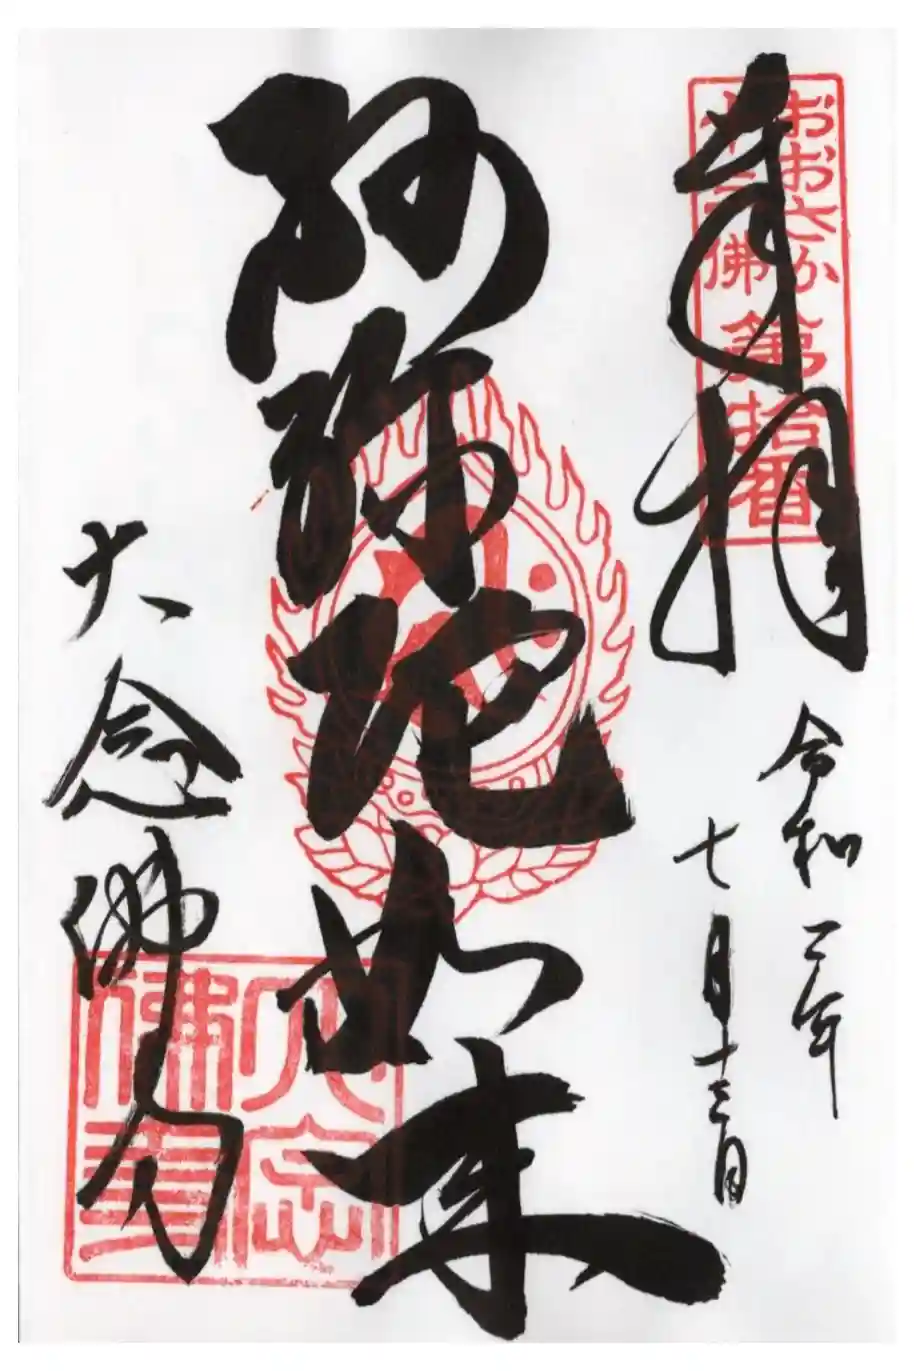 おおさか
十三佛
第拾番
奉拝
令和二年
七月十三日
阿弥陀如来
大念佛寺
大念
佛寺